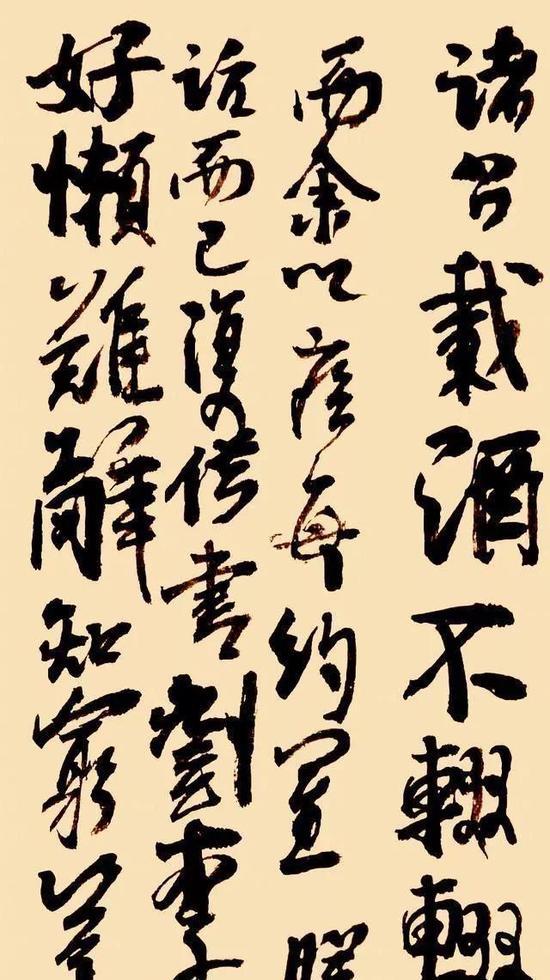 諸公載酒不輟輟
而余以疾每約置膳
話而已復借書劉李
好懶難辭知窮豈